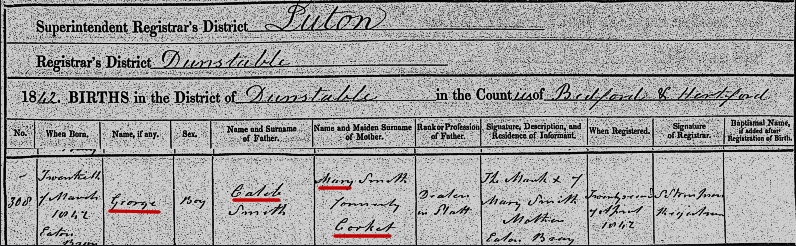 Superintendent Registrar's District Luton
Registrar's District Dunstable
1842. BIRTHS in the District of Dunstable in the Counties of Bedford & Hertford
No. When Born. Name, if any. Sex. Name and Surname of Father. Name and Maiden Surname of Mother. Rank or Profession of Father. Signature, Description, and Residence of Informant. When Registered. Signature of Registrar. Baptismal Name, if added after Registration of Birth.
308
Twentieth
of March
1842
Eaton
Bray
George
Boy
Caleb
Smith
Mary Smith
formerly
Corket
Dealer
in Platt
The Mark X of
Mary Smith
Mother
Eaton Bray
Twenty second
of April
1842
Registrar